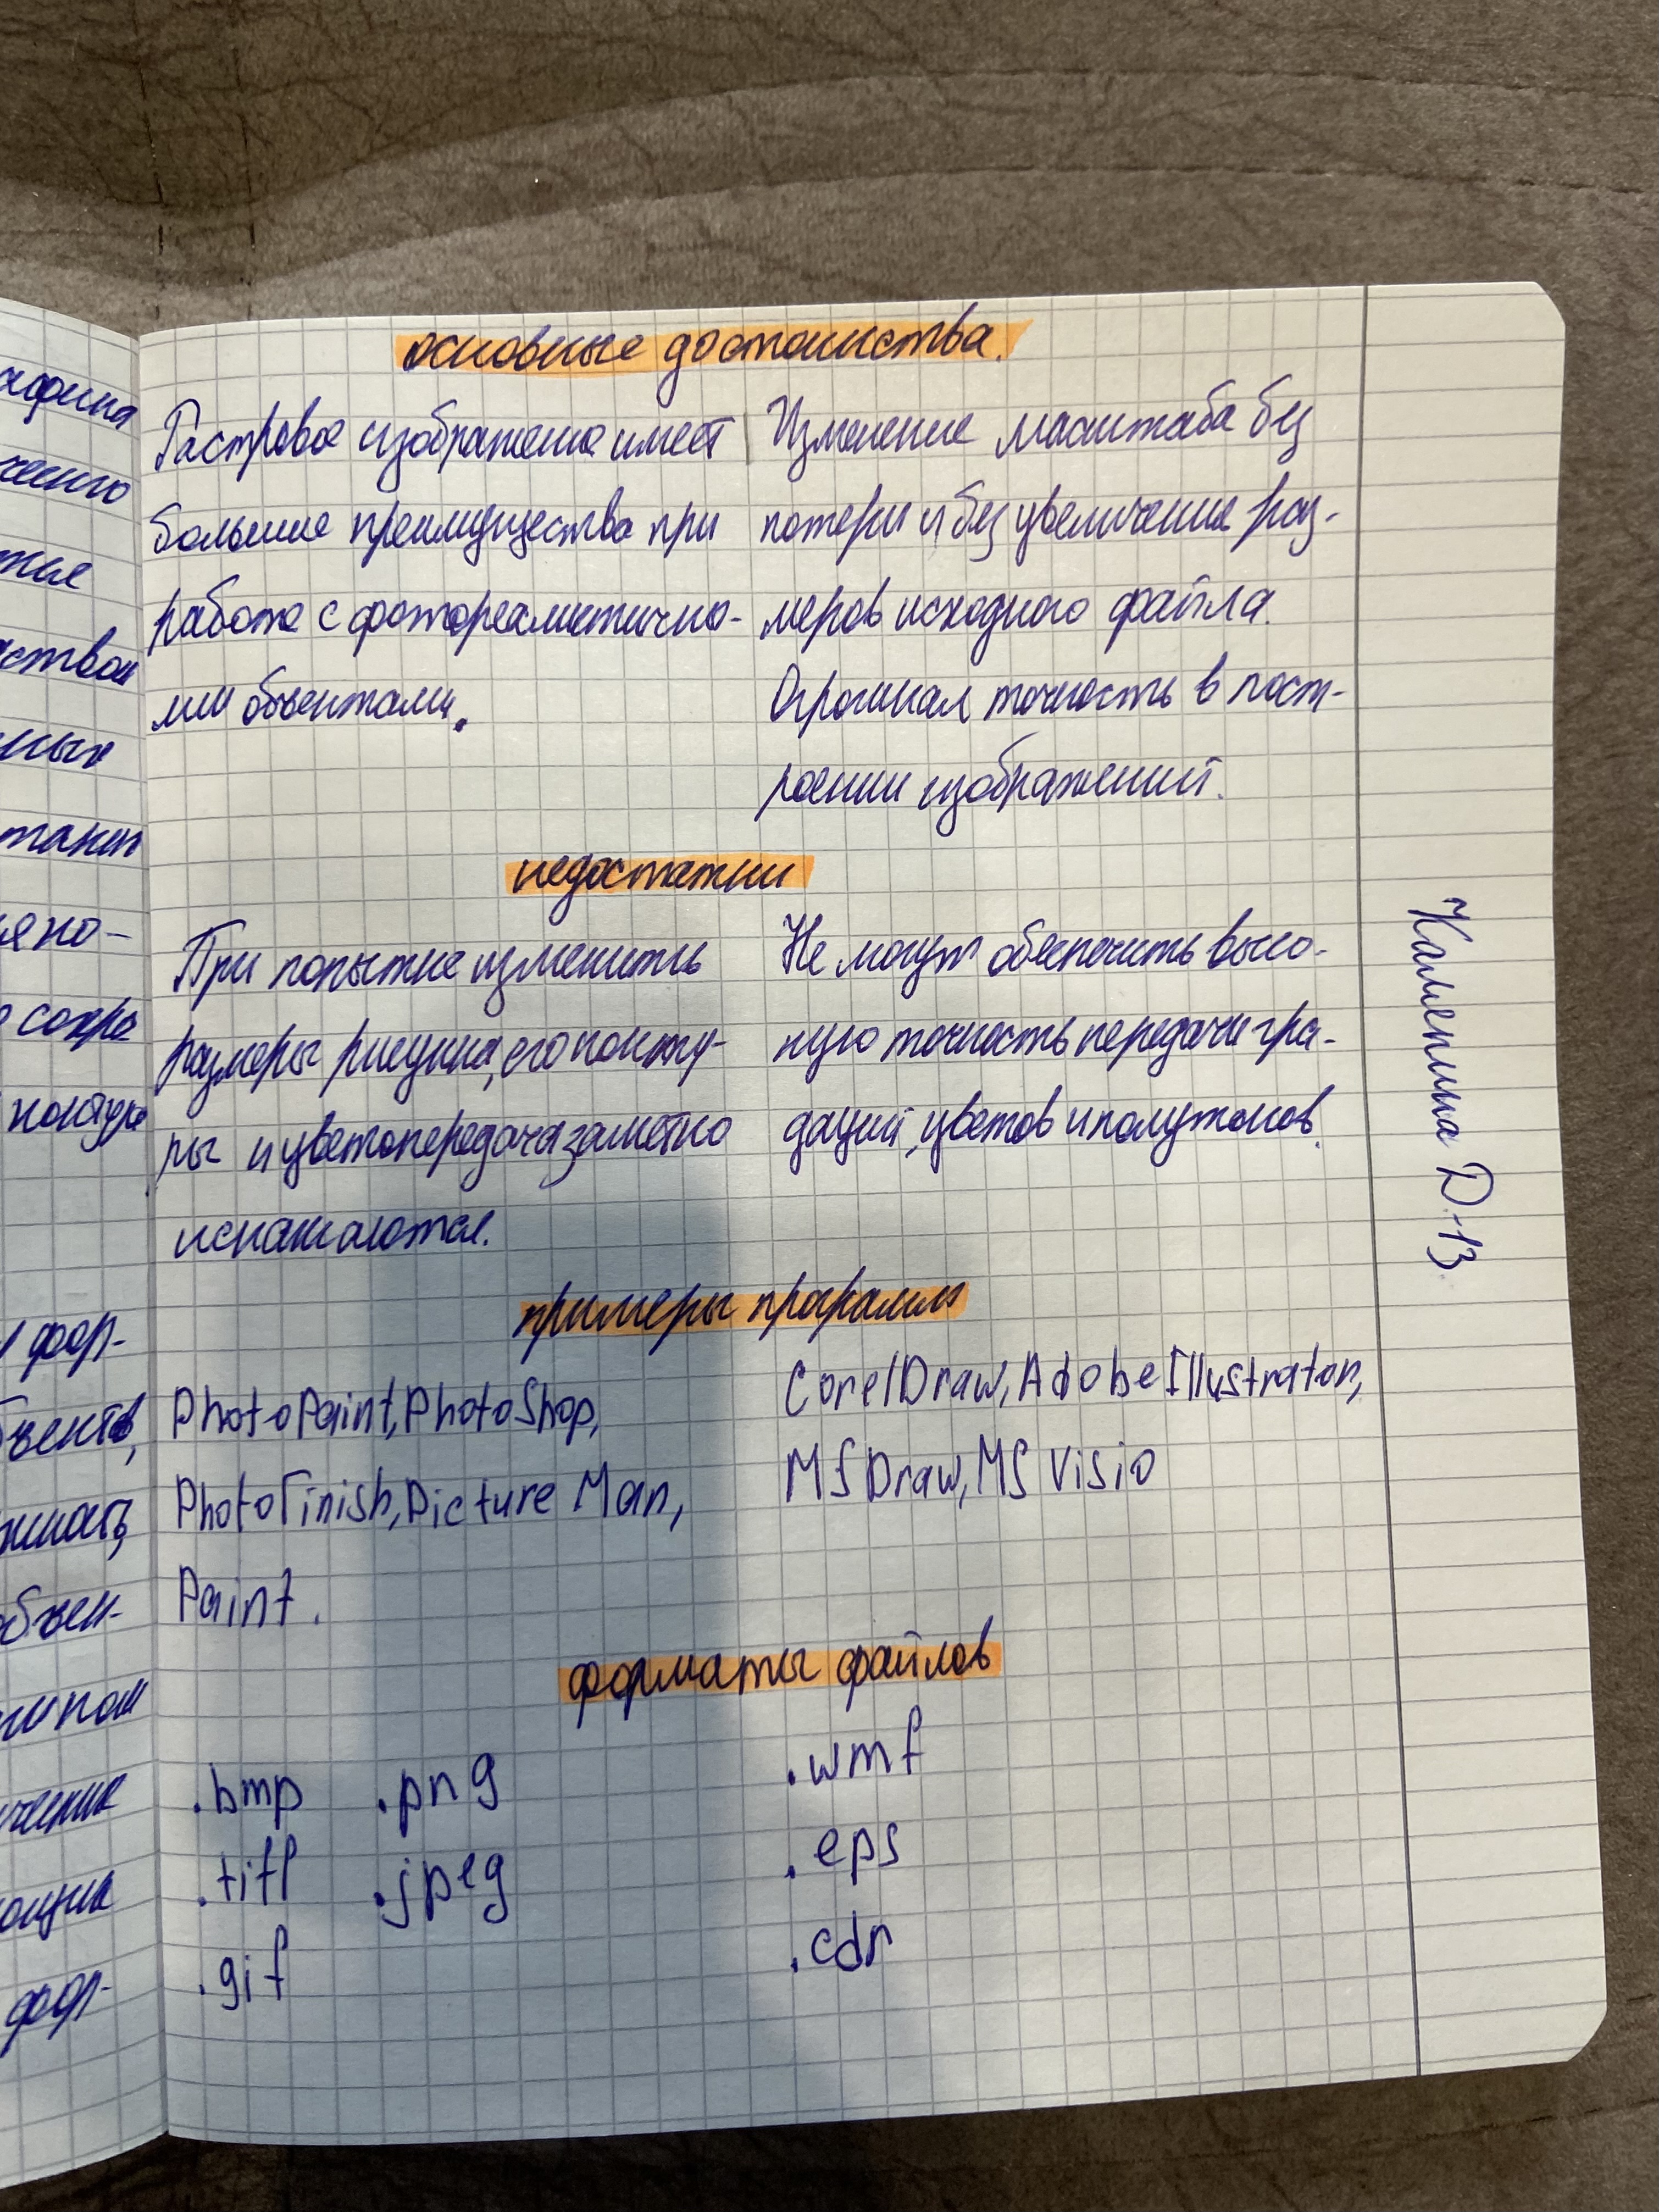 основные достоинства.
Растровое изображение имеет
большие преимущества при
работе с фотореалистично-
ми объектами.
Изменение масштаба без
потери и без увеличения раз-
меров исходного файла.
Огромная точность в пост-
роении изображений.
недостатки
При попытке изменить
размеры рисунка, его конту-
ры и цветопередача заметно
искажаются.
Не могут обеспечить высо-
кую точность передачи гра-
даций, цветов и полутонов.
примеры программ
PhotoPaint, PhotoShop,
PhotoFinish, Picture Man,
Paint.
CorelDraw, Adobe Illustrator,
MS Draw, MS Visio
форматы файлов
.bmp .png
.tiff .jpeg
.gif
.wmf
.eps
.cdr
Каленкина D-13
ством
ных
яно-
сохра
контура
фор-
ъектов,
объек-
типом
фор-